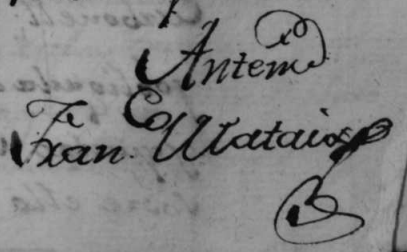 Antemí
Fran.co Mataix